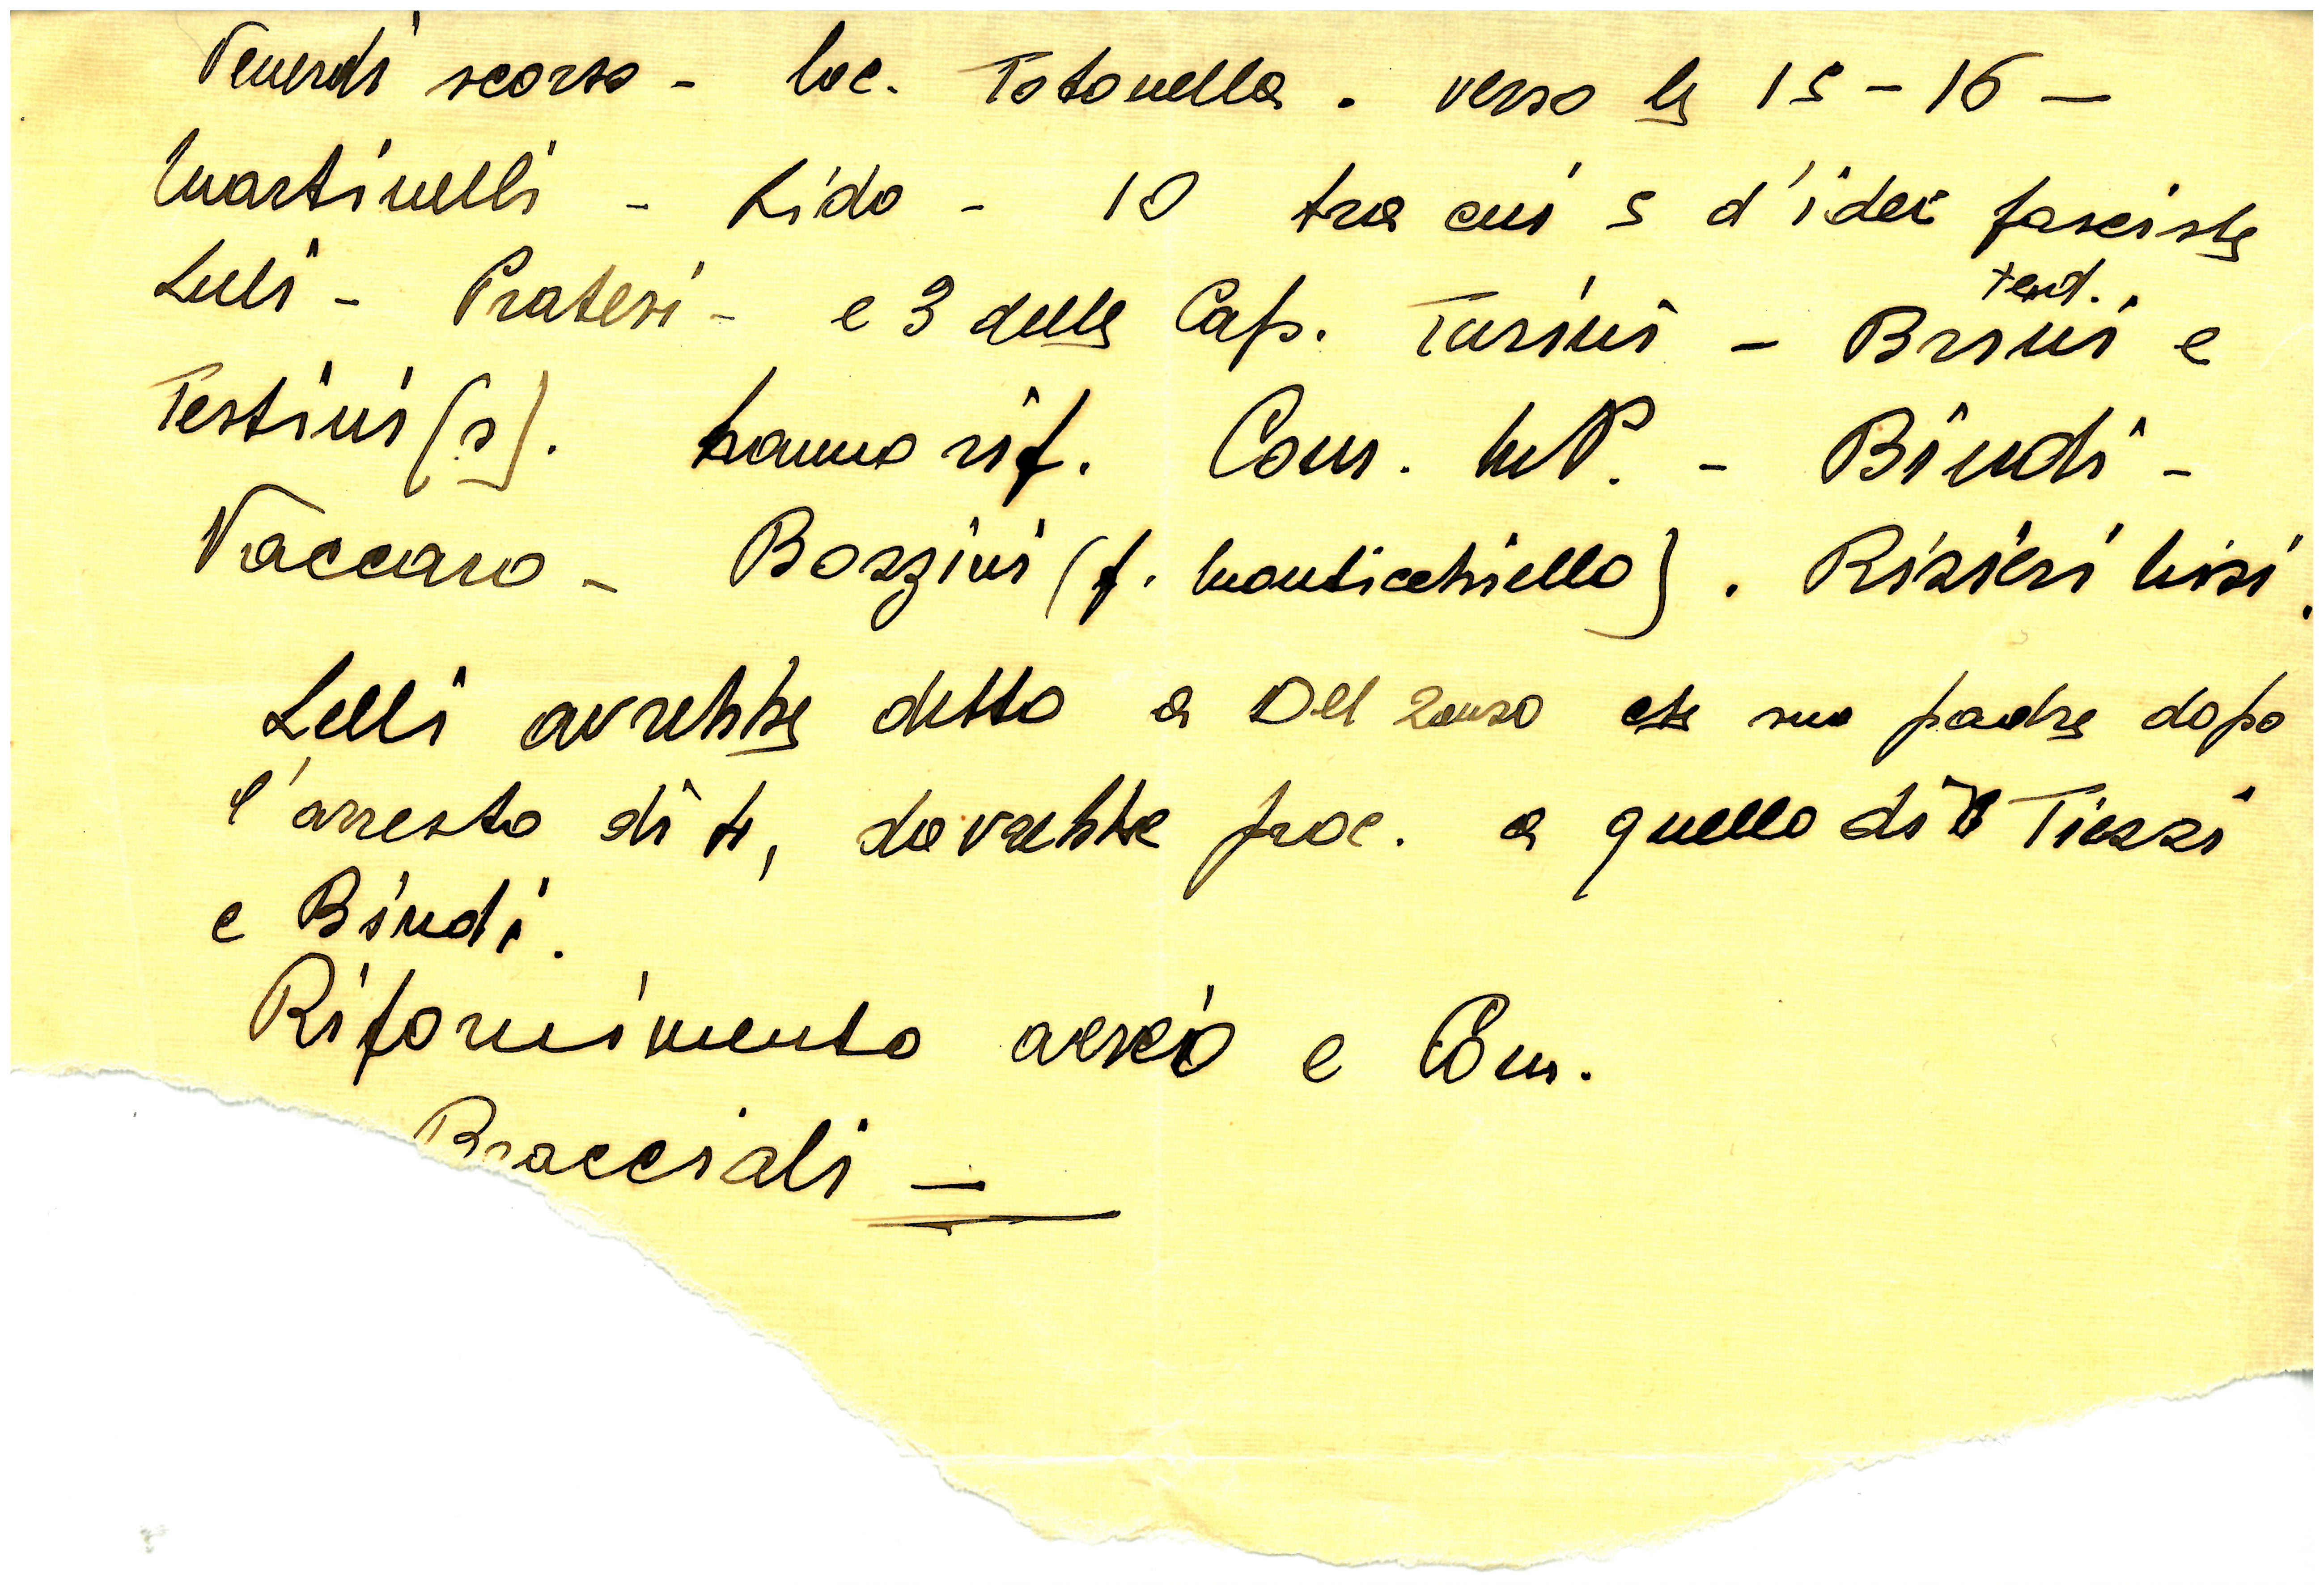 Venerdì scorso - loc. Totonella. verso le 15-16 -
Martinelli - Lido - 10 tra cui 5 d'idee fasciste
Lelli - Pratesi - e 3 delle Cap. Tursini - Brini e
tend.
Testini (s). hanno rif. Com. M.P. - Bindi -
Vaccaro - Bozzini (f. Monticchiello). Risieri Lisi.
Lelli avrebbe detto a Del che suo padre dopo
l'arresto di 4, dovrebbe proc. a quello di Tiezzi
e Bindi.
Rifornimento aereo e Com.
Bracciali -